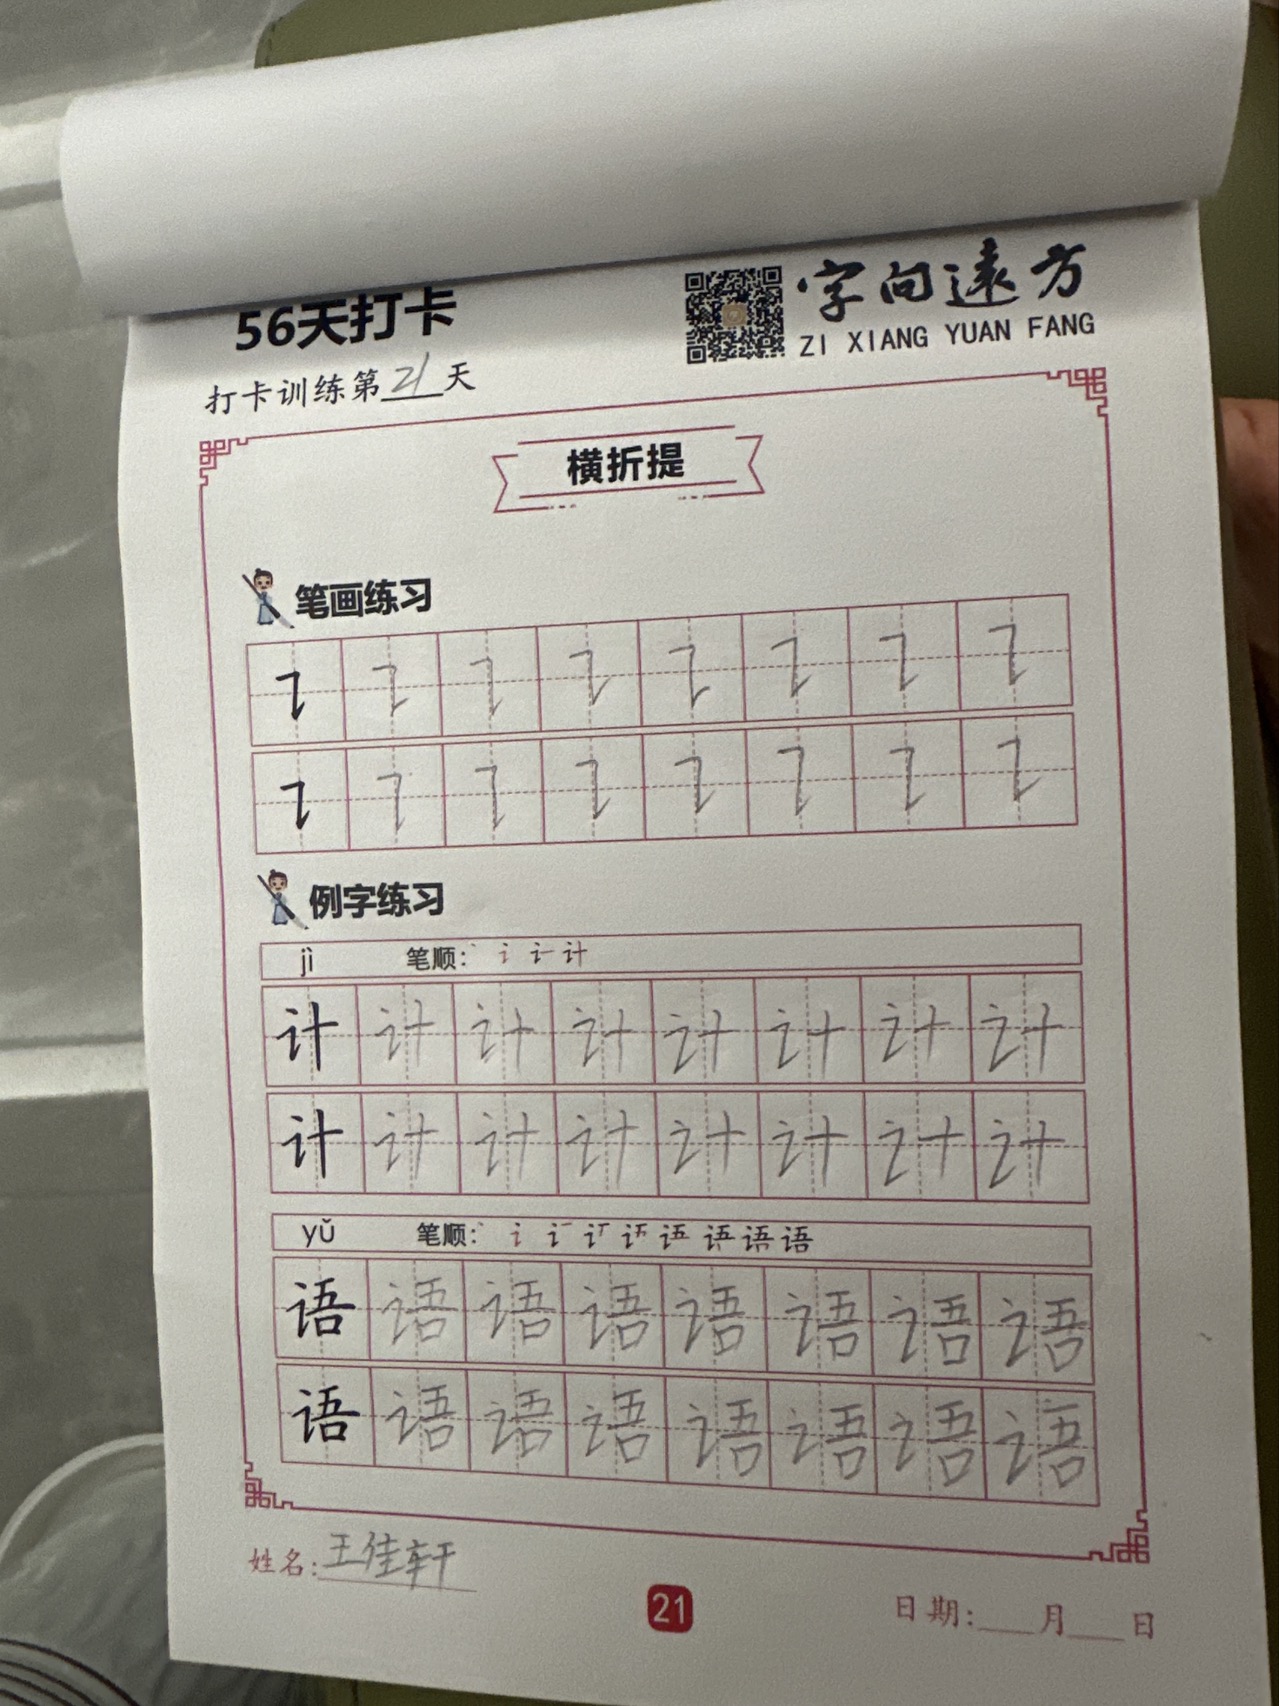 56天打卡
字向远方
ZI XIANG YUAN FANG
打卡训练第21天
横折提
笔画练习
例字练习
jì 笔顺: 计
计 计 计 计 计 计 计 计
计 计 计 计 计 计 计 计
yǔ 笔顺: 语
语 语 语 语 语 语 语 语
语 语 语 语 语 语 语 语
姓名:王佳轩
21
日期:___月___日